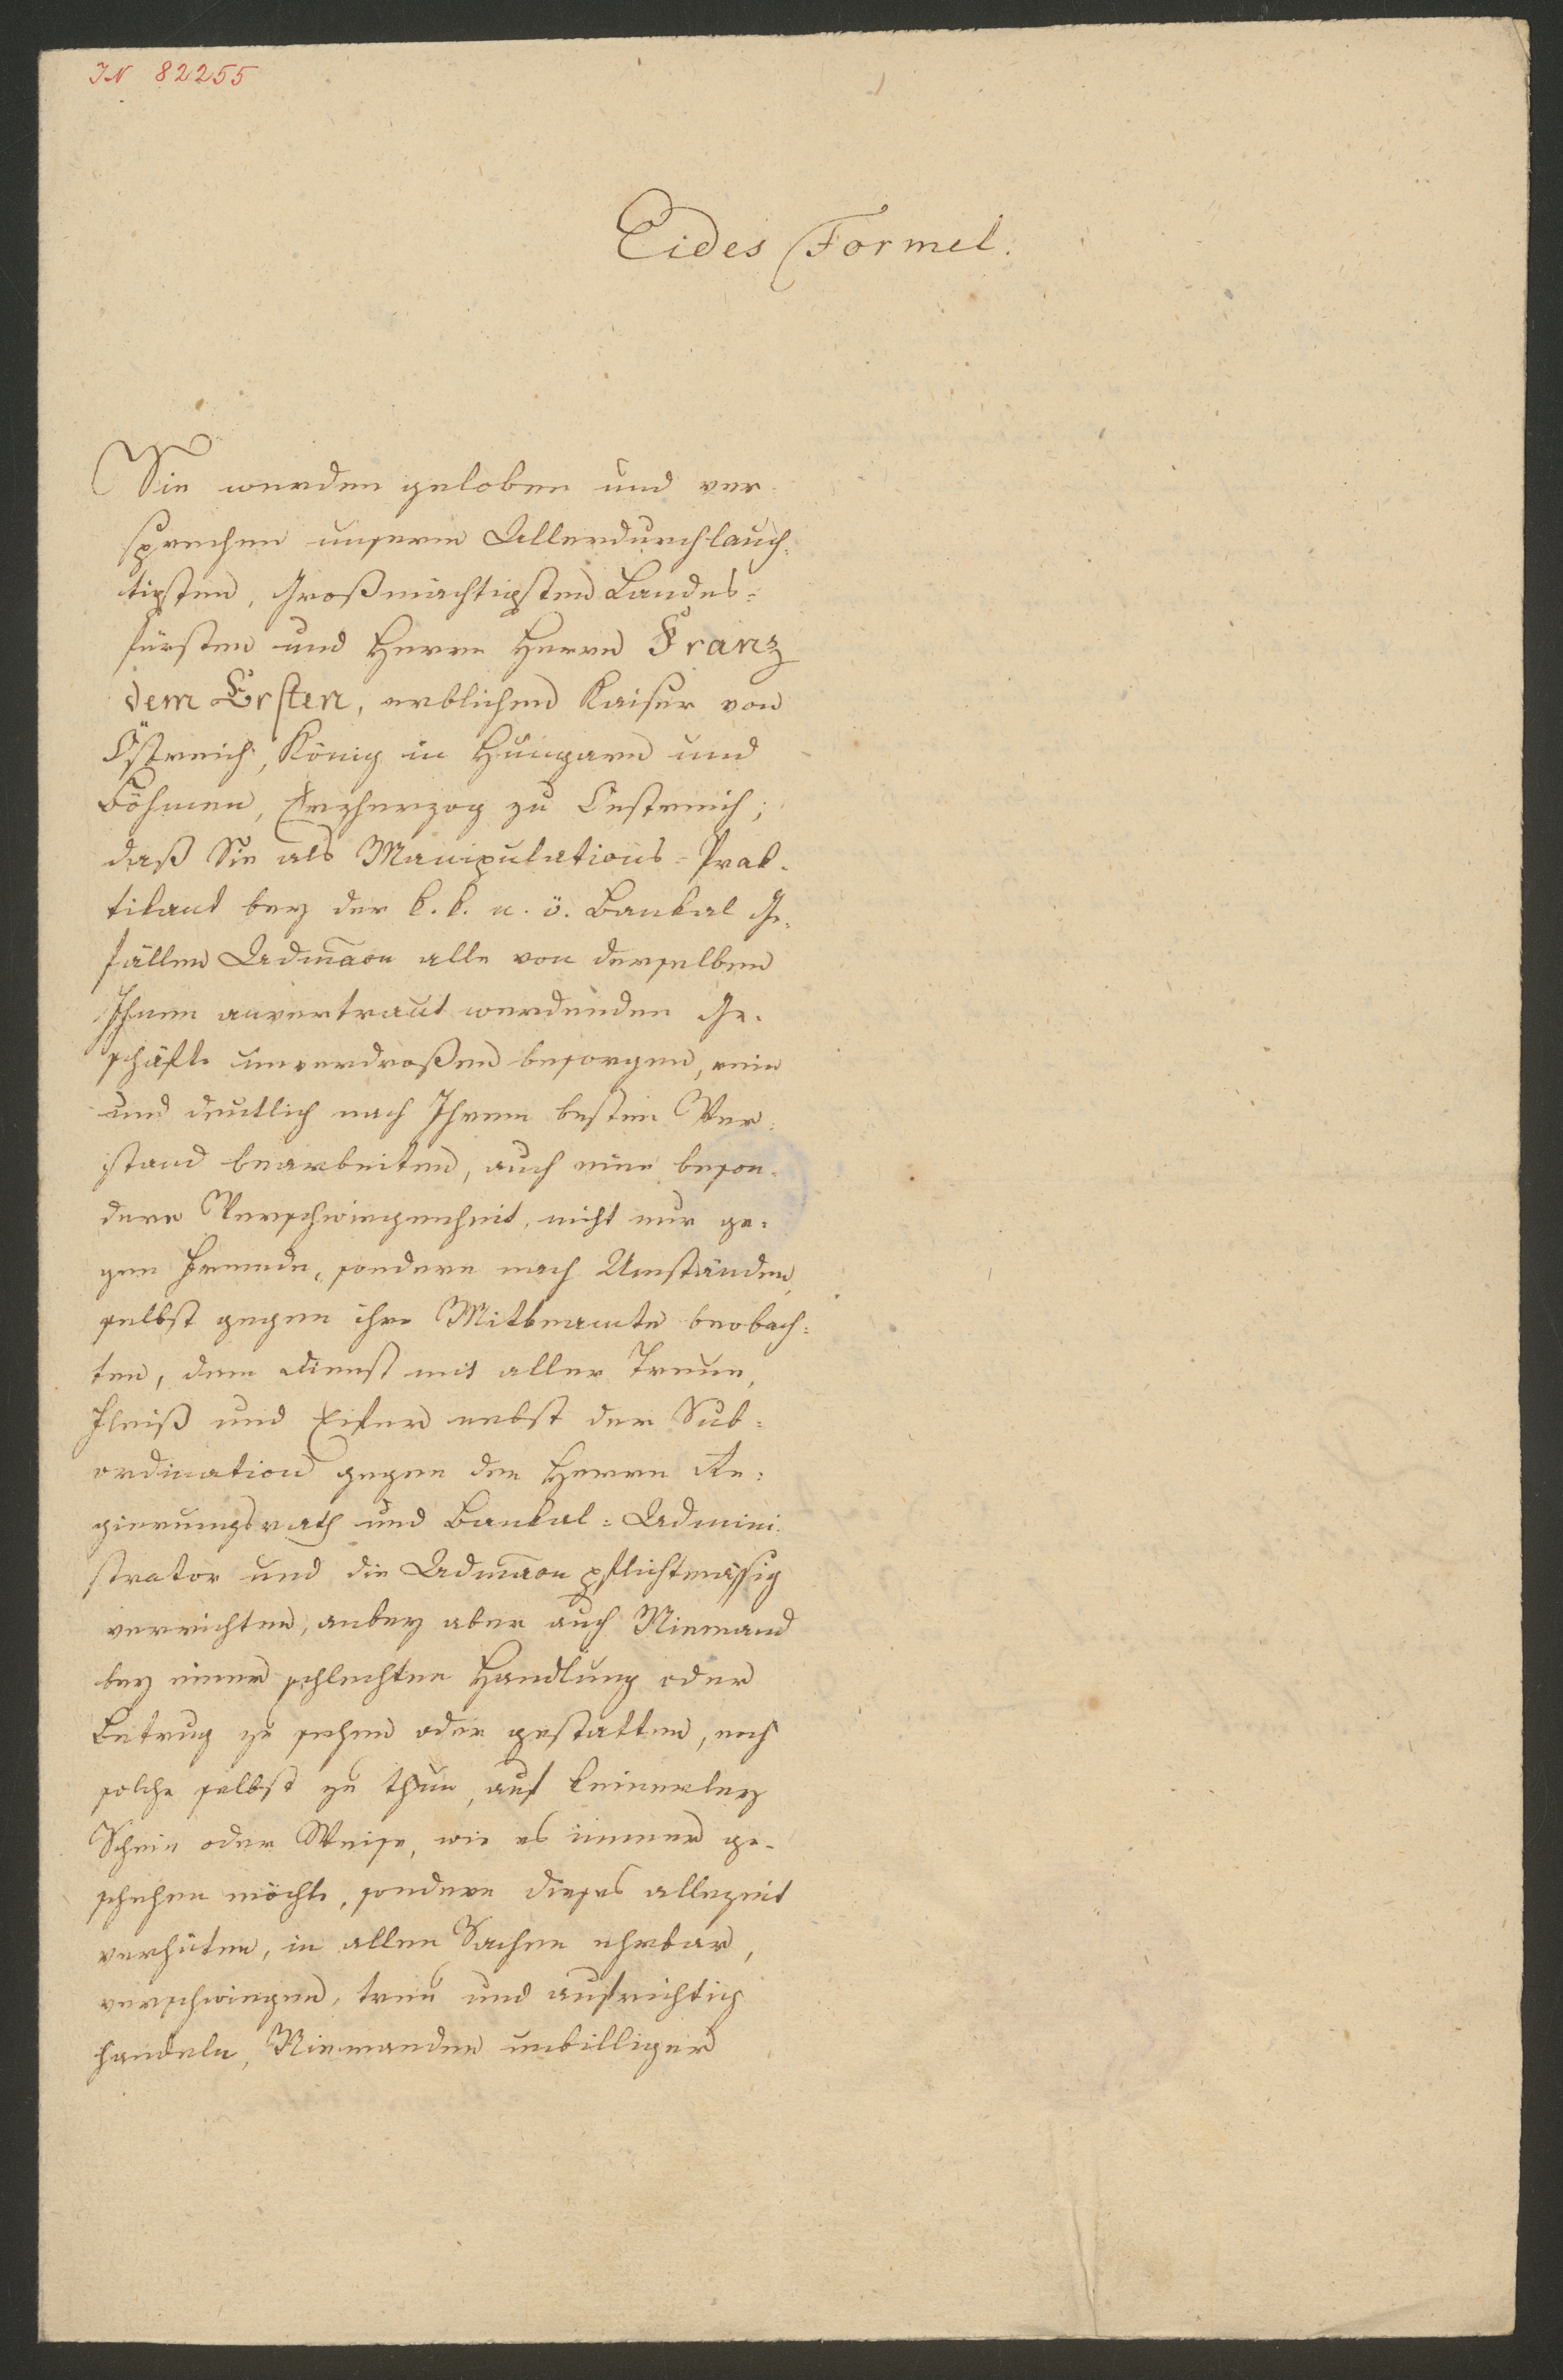 IN 82255
Eides Formel.
Sie werden geloben und ver-
sprechen unserm Allerdurchlauch-
tigsten, Großmächtigsten Landes-
fürsten und Herrn Herrn Franz
dem Ersten, erblichen Kaiser von
Östreich, König in Hungarn und
Böhmen, Erzherzog zu Oestreich;
daß Sie als Manipulations-Prak-
tikant bey der k. k. n. ö. Bankal Ge-
fällen Admāaon alle von derselben
Ihnen anvertraut werdenden Ge-
schäfte unverdroßen besorgen, rein
und deutlich nach Ihrem besten Ver-
stand bearbeiten, auch eine beson-
dere Verschwiegenheit, nicht nur ge-
gen Fremde, sondern nach Umständen
selbst gegen ihre Mitbeamte beobach-
ten, dem Dienst mit aller Treue,
Fleiß und Eifer nebst der Sub-
ordination gegen den Herrn Re-
gierungsrath und Bankal-Admini-
strator und die Admāaon pflichtmässig
verrichten, anbey aber auch Niemand
bey einer schlechten Handlung oder
Betrug zu sehen oder gestatten, noch
solche selbst zu thun, auf keinerley
Schein oder Weise, wie es immer ge-
schehen möchte, sondern dieses allezeit
verhüten, in allen Sachen ehrbar,
verschwiegen, treu und aufrichtig
handeln, Niemanden unbilliger